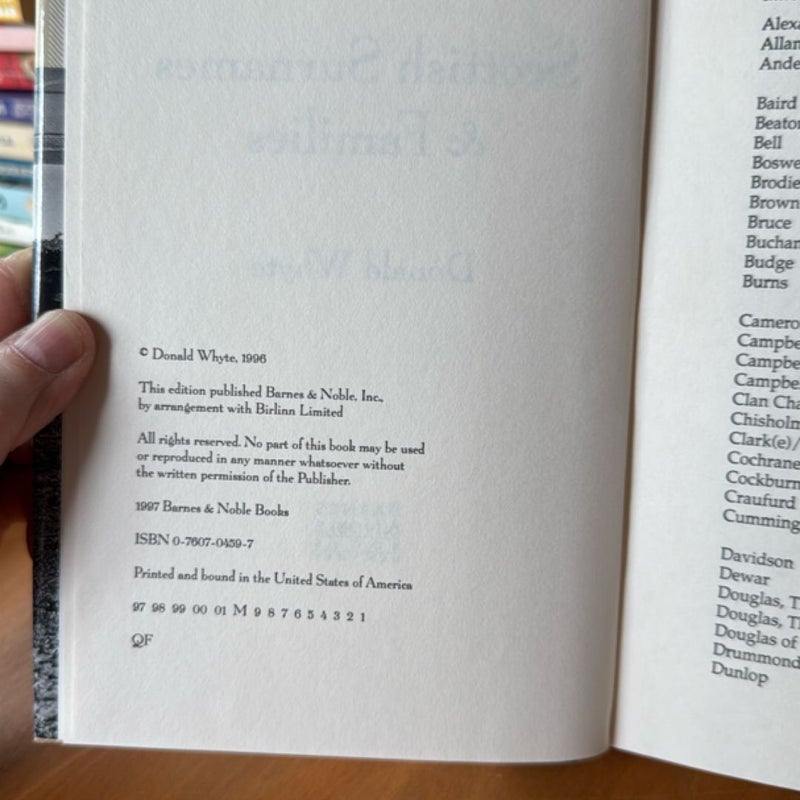 Scottish Surnames
& Families
Donald Whyte
© Donald Whyte, 1996
This edition published Barnes & Noble, Inc.,
by arrangement with Birlinn Limited
All rights reserved. No part of this book may be used
or reproduced in any manner whatsoever without
the written permission of the Publisher.
1997 Barnes & Noble Books
ISBN 0-7607-0459-7
Printed and bound in the United States of America
97 98 99 00 01 M 9 8 7 6 5 4 3 2 1
QF
Alexa
Allan
Ande
Baird
Beaton
Bell
Boswe
Brodie
Brown
Bruce
Buchan
Budge
Burns
Camero
Campbe
Campbe
Campbe
Clan Cha
Chisholm
Clark(e)/
Cochrane
Cockburn
Craufurd
Cumming
Davidson
Dewar
Douglas, T
Douglas, Th
Douglas of
Drummond
Dunlop